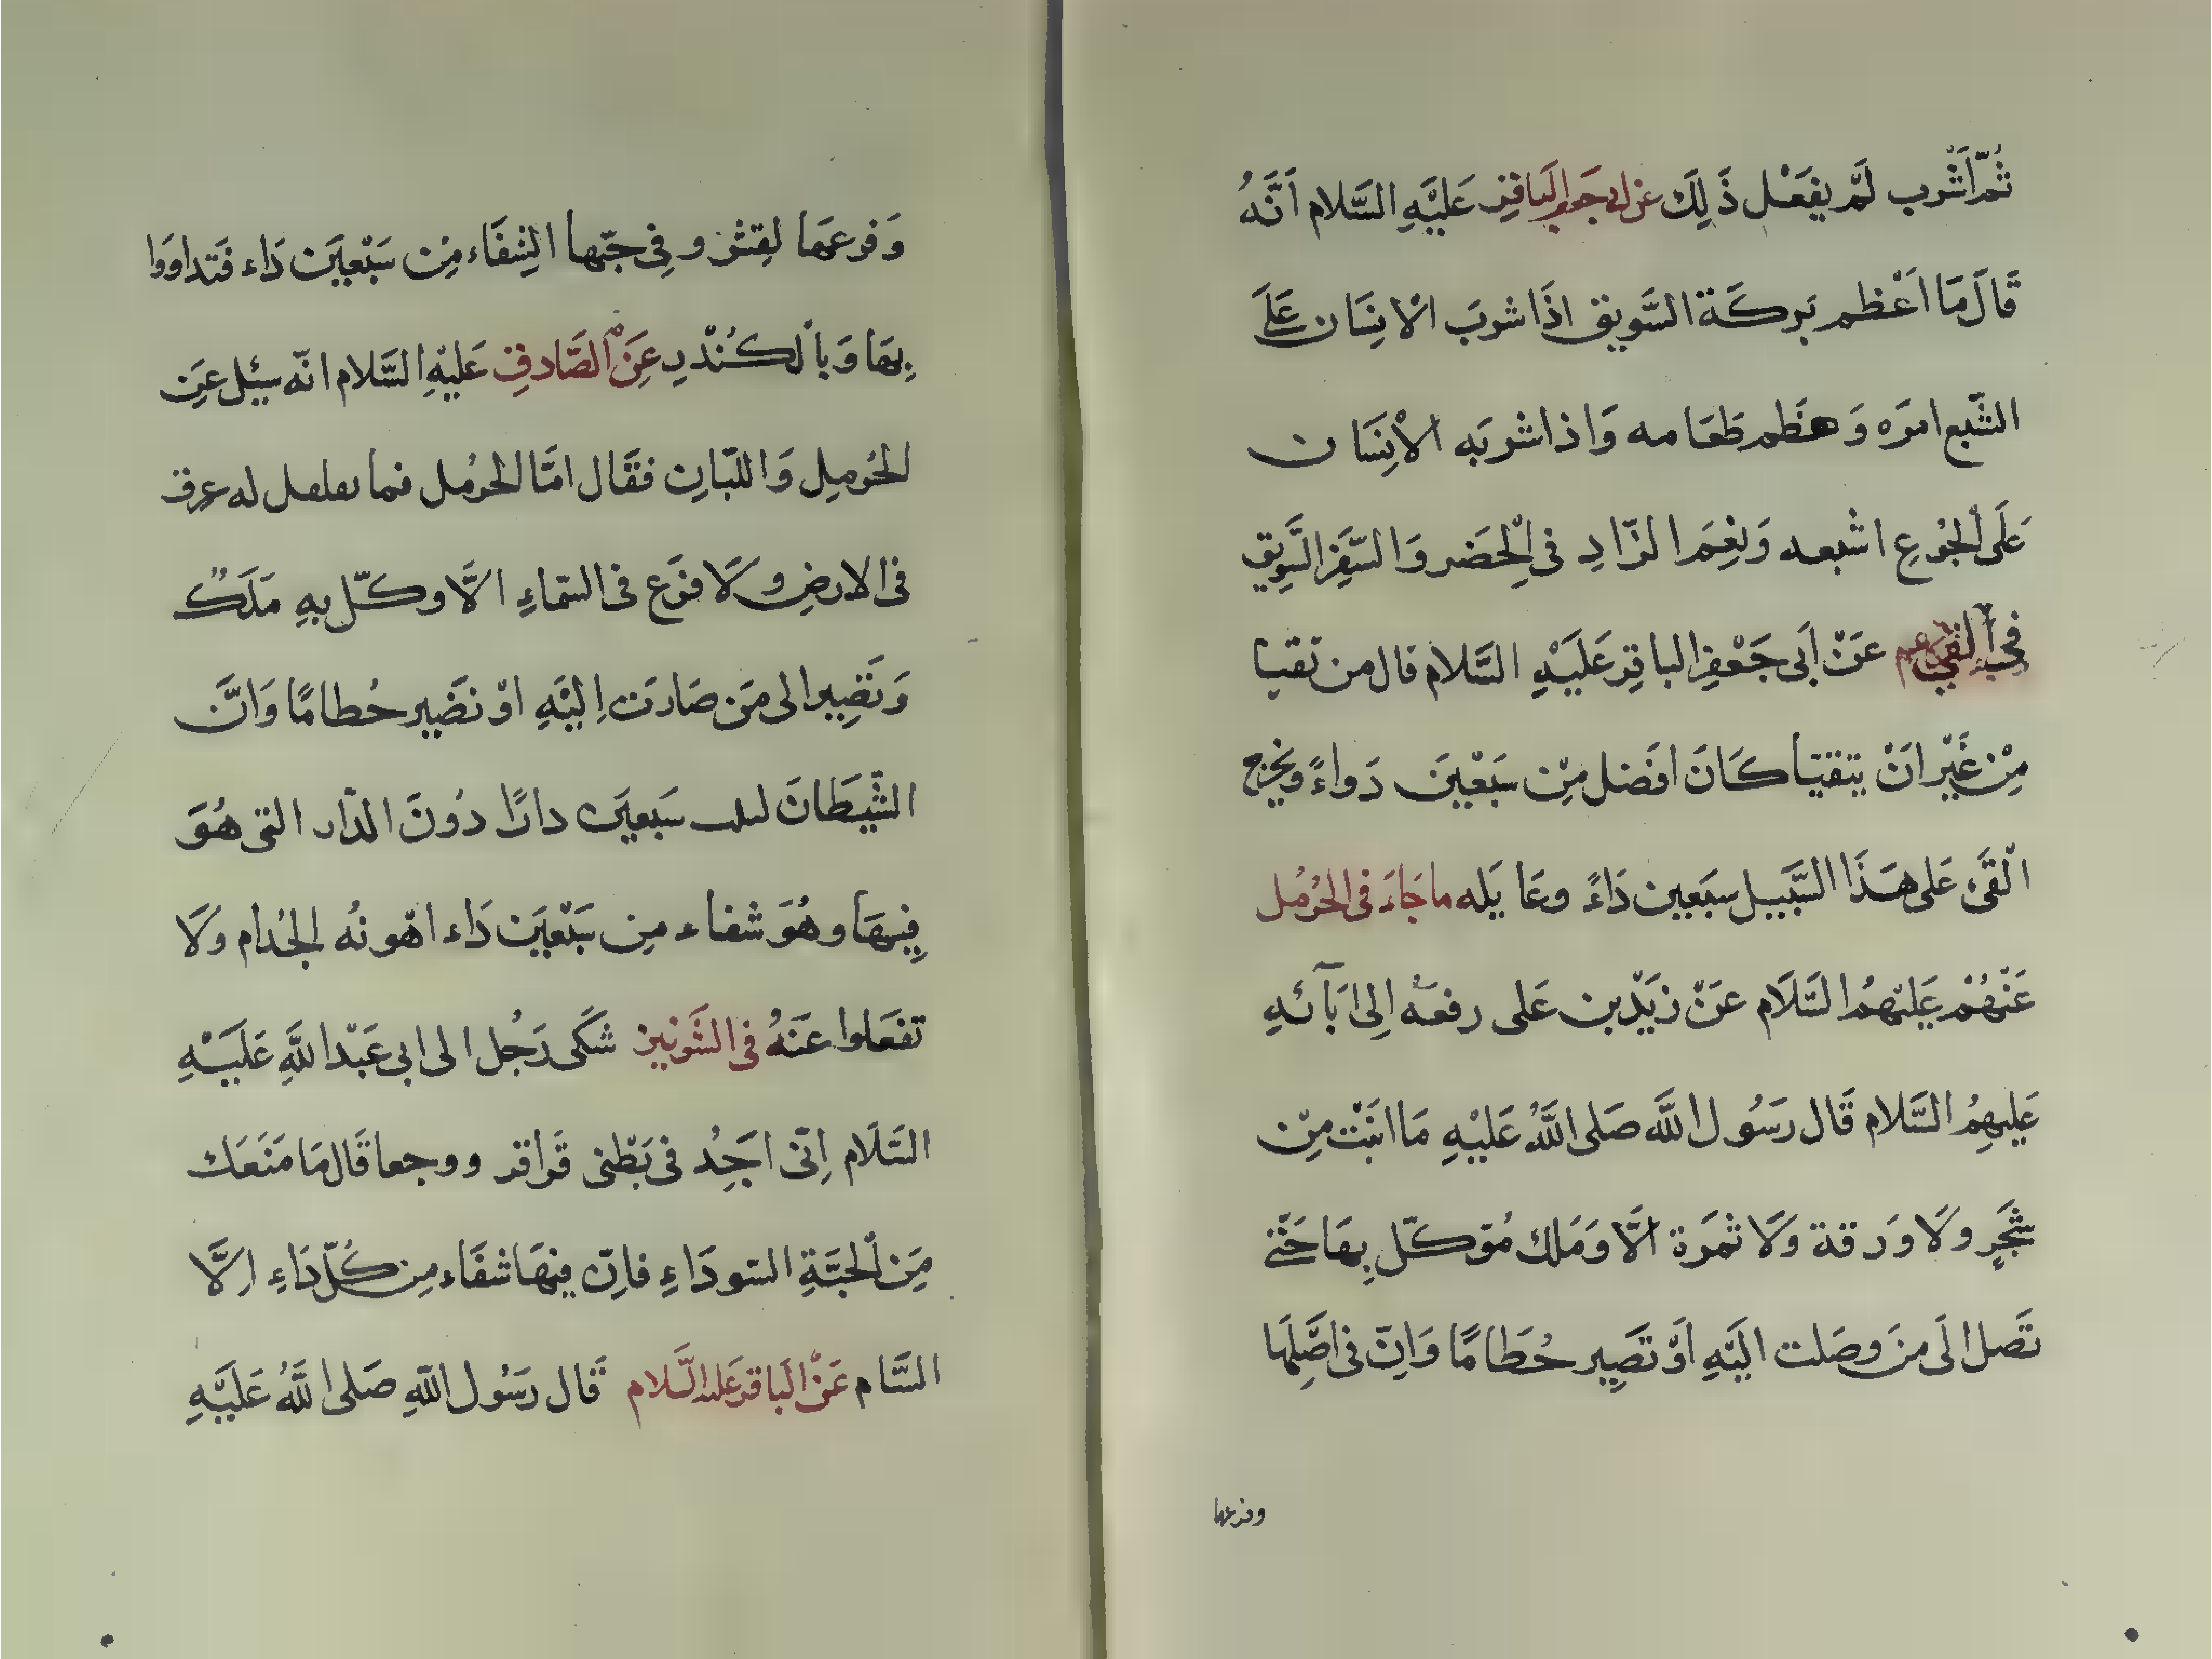 ثُمَّ اَشْرب لَمْ يفعَْل ذَلِكَ عن ابی جعفر الباقر عَليَْهِ السَّلام اَنَّهُ
قَالَ مَا اَعْظم بَركَة السَّويق اذَا شربَ الْانِسَان عَلَى
الشَّبع امرَه وَهضَم طَعَامه وَاذا شربَه الْانِسَان
عَلَى الْجُوع اشْبعه وَنِعْمَ الزّادِ فى الْحَضر وَالسَّفَرِ السَّوِيق
فِى الْقَیء عَنْ اَبى جَعْفرِ الباقِر عَلَيْهِ السَّلام قال من تقيا
مِنْ غَيْر انَْ يتقيّا كَانَ افَضل مِنْ سَبْعِينَ دَواءً ويخرج
الْقَىء عَلى هَذَا السَّبيل سبَعين دَاءً وعَايَله ما جَاءَ فى الحُرْمُل
عَنْهُمْ عَليْهمُ السَّلَام عَنْ زَيْدبن عَلى رفعَهُ اِلى اَبَآئهِ
عَليهِمُ السَّلام قَال رَسُول اللَّه صَلى اللَّهُ عَليْهِ مَا انَبْت مِنْ
شَجَرٍ وَلَا وَرَقة وَلَا ثمَرَة الَّا وَمَلك مُوَكّل بِهَا حَتّى
تَصل الَى مَن وصَلت اليَْهِ اَوْ تَصِير حُطَامًا وَاِنّ فى اصَْلِهَا
وفرعها
وَفرعهَا لقشر و فِى حَبّها الشِفَاء مِن سَبْعيَن دَاء فَتداووا
بِهَا وَبالْكُنْدرِ عَنِ الْصَّادقِ عَليْهِ السَّلام انّه سيُل عَنِ
الحُرمِلِ وَاللّبانِ فقَال امَّا الحُرمُل فما تقلقل له عرق
فى الارضِ وَلَا فرَع فى السّماءِ الَّا وكّل بهِ مَلَكٌ
وَتَصِير الى مَن صَارَت اِليَْهِ اوْ تَصَير حُطامًا وَانَّ
الشّيَطَانَ سَبعيَن دارًا دُونَ الدّار التى هُوَ
فِيهَا وهُوَ شفاء مِن سَبْعيَن دَاء اهّونهُ الجُدام وَلَا
تفعَلوا عَنهُ فى الشَّونِيز شَكَى رَجُل الى ابى عَبْد اللَّهِ عَلَيْهِ
السَّلَام اِنّى اجَِدُ فى بَطْنى قَراقر ووجعا قَال مَا مَنَعَك
مَِن الْحَبّةِ السّودَاءِ فاِنّ فيهَا شفَاء مِن كُلّ دَاءِ اِلَّا
السَّام عَنْ الْبَاقر عليه السَّلام قَال رَسُول اللهِ صَلى اللَّهُ عَلَيْهِ